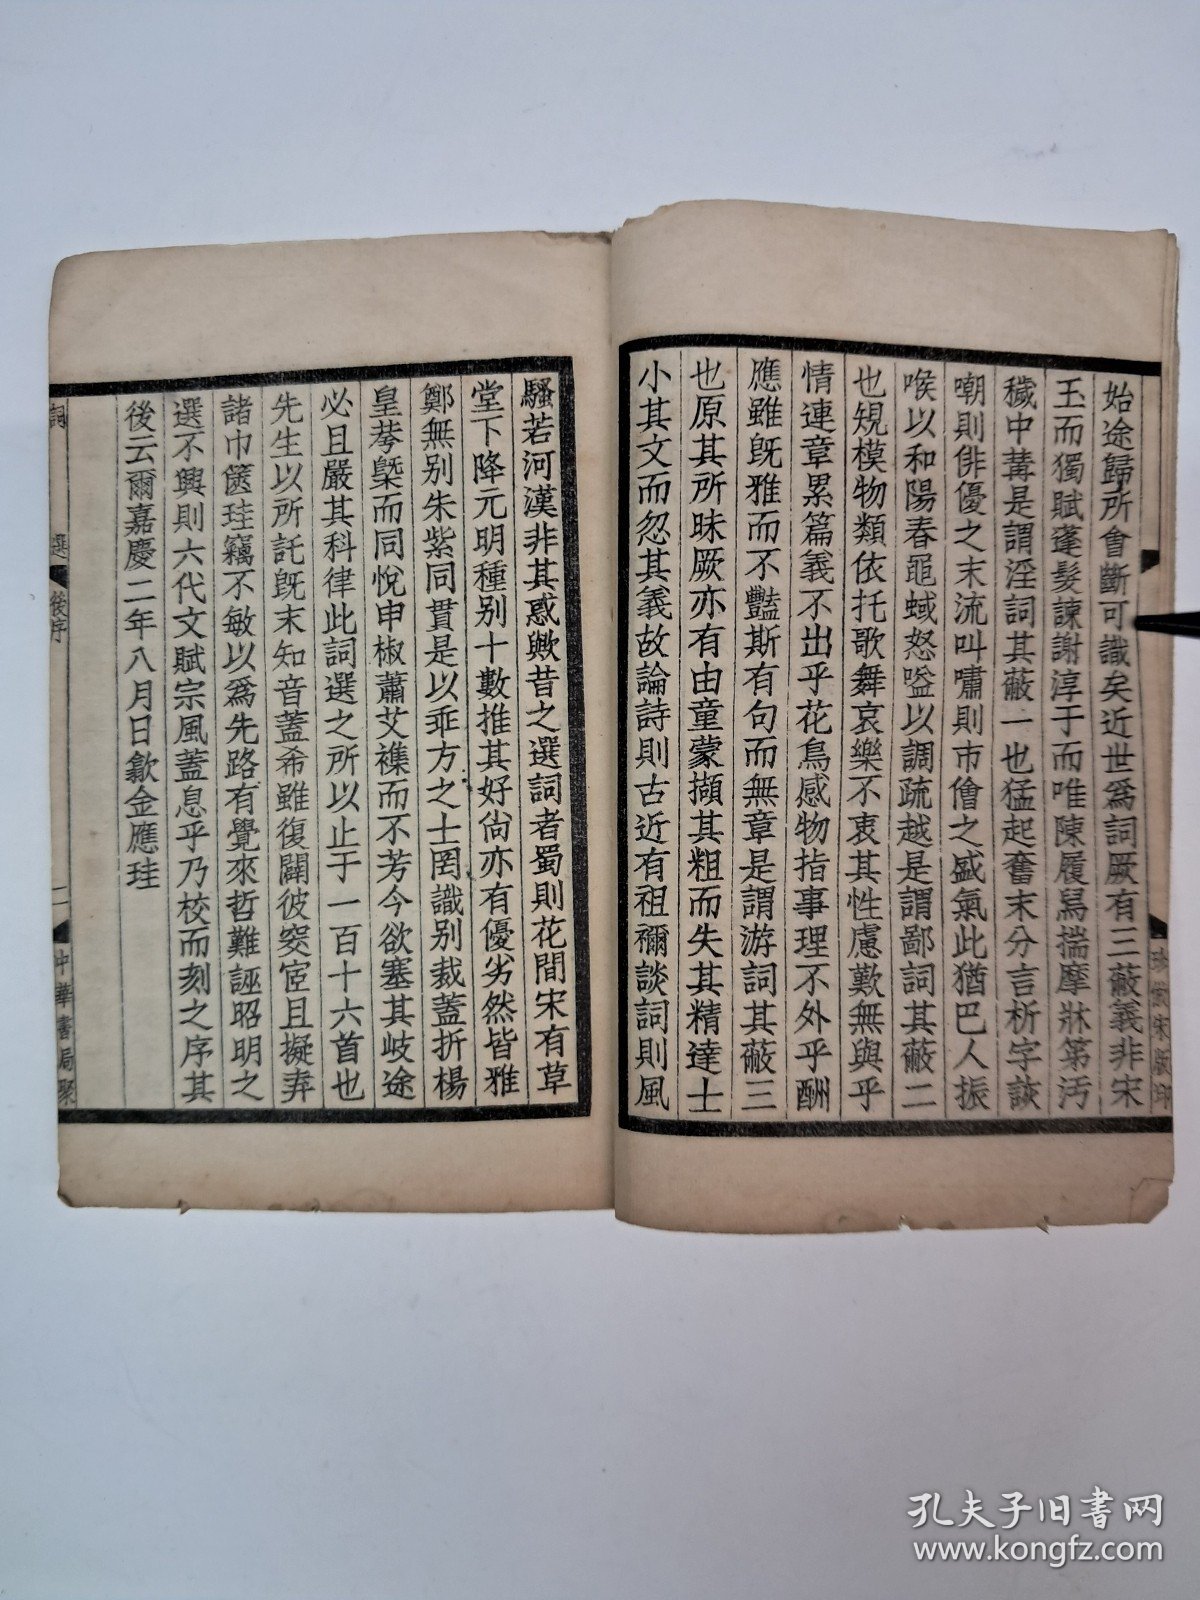 始途歸所會斷可識矣近世爲詞厥有三蔽義非宋
玉而獨賦蓬髮諫謝淳于而唯陳履舄揣摩牀第汚
穢中冓是謂淫詞其蔽一也猛起奮末分言析字詼
嘲則俳優之末流叫嘯則市儈之盛氣此猶巴人振
喉以和陽春黽蜮怒嗌以調疏越是謂鄙詞其蔽二
也規模物類依托歌舞哀樂不衷其性慮歎無與乎
情連章累篇義不出乎花鳥感物指事理不外乎酬
應雖旣雅而不豔斯有句而無章是謂游詞其蔽三
也原其所昧厥亦有由童蒙擷其粗而失其精達士
小其文而忽其義故論詩則古近有祖禰談詞則風
珍倣宋版印
騷若河漢非其惑歟昔之選詞者蜀則花間宋有草
堂下降元明種别十數推其好尙亦有優劣然皆雅
鄭無别朱紫同貫是以乖方之士罔識别裁蓋折楊
皇荂槩而同悅申椒蕭艾襍而不芳今欲塞其岐途
必且嚴其科律此詞選之所以止于一百十六首也
先生以所託旣末知音蓋希雖復闢彼窔宧且擬弆
諸巾篋珪竊不敏以爲先路有覺來哲難誣昭明之
選不興則六代文賦宗風蓋息乎乃校而刻之序其
後云爾嘉慶二年八月日歙金應珪
詞選 後序 二 中華書局聚
孔夫子旧书网
www.kongfz.com